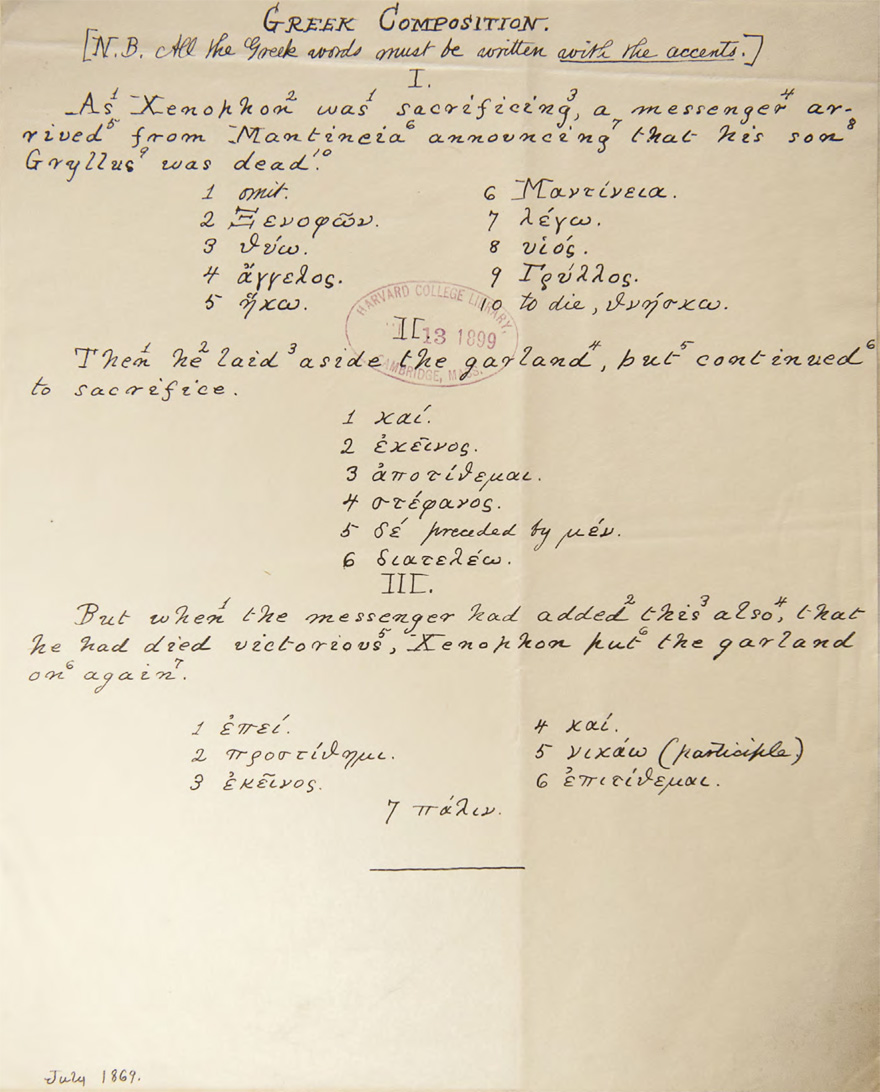 GREEK COMPOSITION.
[N.B. All the Greek words must be written with the accents.]
I.
As¹ Xenophon² was¹ sacrificing³, a messenger⁴ ar-
rived⁵ from Mantineia⁶ announcing⁷ that his son⁸
Gryllus⁹ was dead¹⁰.
1 omit.
2 Ξενοφῶν.
3 θύω.
4 ἄγγελος.
5 ἥκω.
6 Μαντίνεια.
7 λέγω.
8 υἱός.
9 Γρύλλος.
10 to die, θνήσκω.
HARVARD COLLEGE LIBRARY,
13 1899
CAMBRIDGE, MASS.
II.
Then¹ he² laid³ aside the garland⁴, but⁵ continued⁶
to sacrifice.
1 καί.
2 ἐκεῖνος.
3 ἀποτίθεμαι.
4 στέφανος.
5 δέ preceded by μέν.
6 διατελέω.
III.
But when¹ the messenger had added² this³ also⁴, that
he had died victorious⁵, Xenophon put⁶ the garland
on⁶ again⁷.
1 ἐπεί.
2 προστίθημι.
3 ἐκεῖνος.
4 καί.
5 νικάω (participle)
6 ἐπιτίθεμαι.
7 πάλιν.
July 1869.